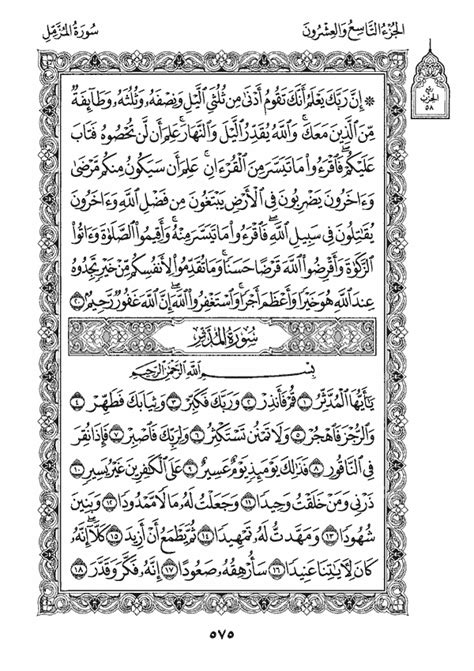 الجُزْءُ التَّاسِعُ وَالعِشْرُونَ
سُورَةُ المُزَّمِّل
ربع
الحزب
٥٨
۞ إِنَّ رَبَّكَ يَعْلَمُ أَنَّكَ تَقُومُ أَدْنَىٰ مِن ثُلُثَيِ ٱلَّيْلِ وَنِصْفَهُۥ وَثُلُثَهُۥ وَطَآئِفَةٌ
مِّنَ ٱلَّذِينَ مَعَكَۚ وَٱللَّهُ يُقَدِّرُ ٱلَّيْلَ وَٱلنَّهَارَۚ عَلِمَ أَن لَّن تُحْصُوهُ فَتَابَ
عَلَيْكُمْۖ فَٱقْرَءُوا۟ مَا تَيَسَّرَ مِنَ ٱلْقُرْءَانِۚ عَلِمَ أَن سَيَكُونُ مِنكُم مَّرْضَىٰ
وَءَاخَرُونَ يَضْرِبُونَ فِي ٱلْأَرْضِ يَبْتَغُونَ مِن فَضْلِ ٱللَّهِ وَءَاخَرُونَ
يُقَٰتِلُونَ فِي سَبِيلِ ٱللَّهِۖ فَٱقْرَءُوا۟ مَا تَيَسَّرَ مِنْهُۚ وَأَقِيمُوا۟ ٱلصَّلَوٰةَ وَءَاتُوا۟
ٱلزَّكَوٰةَ وَأَقْرِضُوا۟ ٱللَّهَ قَرْضًا حَسَنًاۚ وَمَا تُقَدِّمُوا۟ لِأَنفُسِكُم مِّنْ خَيْرٍ تَجِدُوهُ
عِندَ ٱللَّهِ هُوَ خَيْرًا وَأَعْظَمَ أَجْرًاۚ وَٱسْتَغْفِرُوا۟ ٱللَّهَۖ إِنَّ ٱللَّهَ غَفُورٌ رَّحِيمٌۢ ٢٠
سُورَةُ المُدَّثِّر
بِسْمِ ٱللَّهِ ٱلرَّحْمَٰنِ ٱلرَّحِيمِ
يَٰٓأَيُّهَا ٱلْمُدَّثِّرُ ١ قُمْ فَأَنذِرْ ٢ وَرَبَّكَ فَكَبِّرْ ٣ وَثِيَابَكَ فَطَهِّرْ ٤
وَٱلرُّجْزَ فَٱهْجُرْ ٥ وَلَا تَمْنُن تَسْتَكْثِرُ ٦ وَلِرَبِّكَ فَٱصْبِرْ ٧ فَإِذَا نُقِرَ
فِي ٱلنَّاقُورِ ٨ فَذَٰلِكَ يَوْمَئِذٍ يَوْمٌ عَسِيرٌ ٩ عَلَى ٱلْكَٰفِرِينَ غَيْرُ يَسِيرٍ ١٠
ذَرْنِي وَمَنْ خَلَقْتُ وَحِيدًا ١١ وَجَعَلْتُ لَهُۥ مَالًا مَّمْدُودًا ١٢ وَبَنِينَ
شُهُودًا ١٣ وَمَهَّدتُّ لَهُۥ تَمْهِيدًا ١٤ ثُمَّ يَطْمَعُ أَنْ أَزِيدَ ١٥ كَلَّآۖ إِنَّهُۥ
كَانَ لِءَايَٰتِنَا عَنِيدًا ١٦ سَأُرْهِقُهُۥ صَعُودًا ١٧ إِنَّهُۥ فَكَّرَ وَقَدَّرَ ١٨
٥٧٥